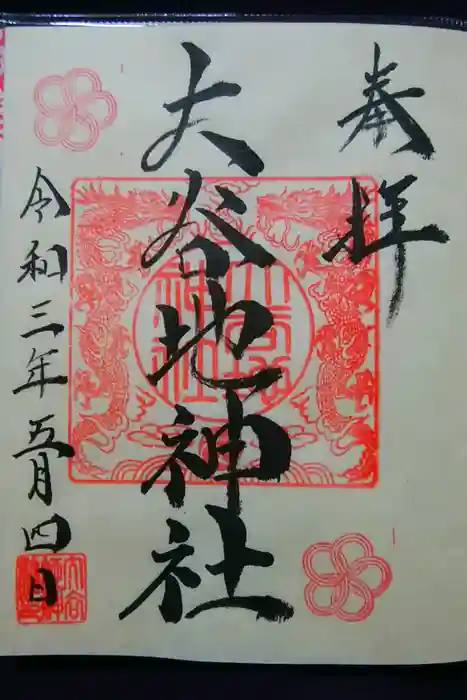 奉拝
大谷地神社
令和三年五月四日